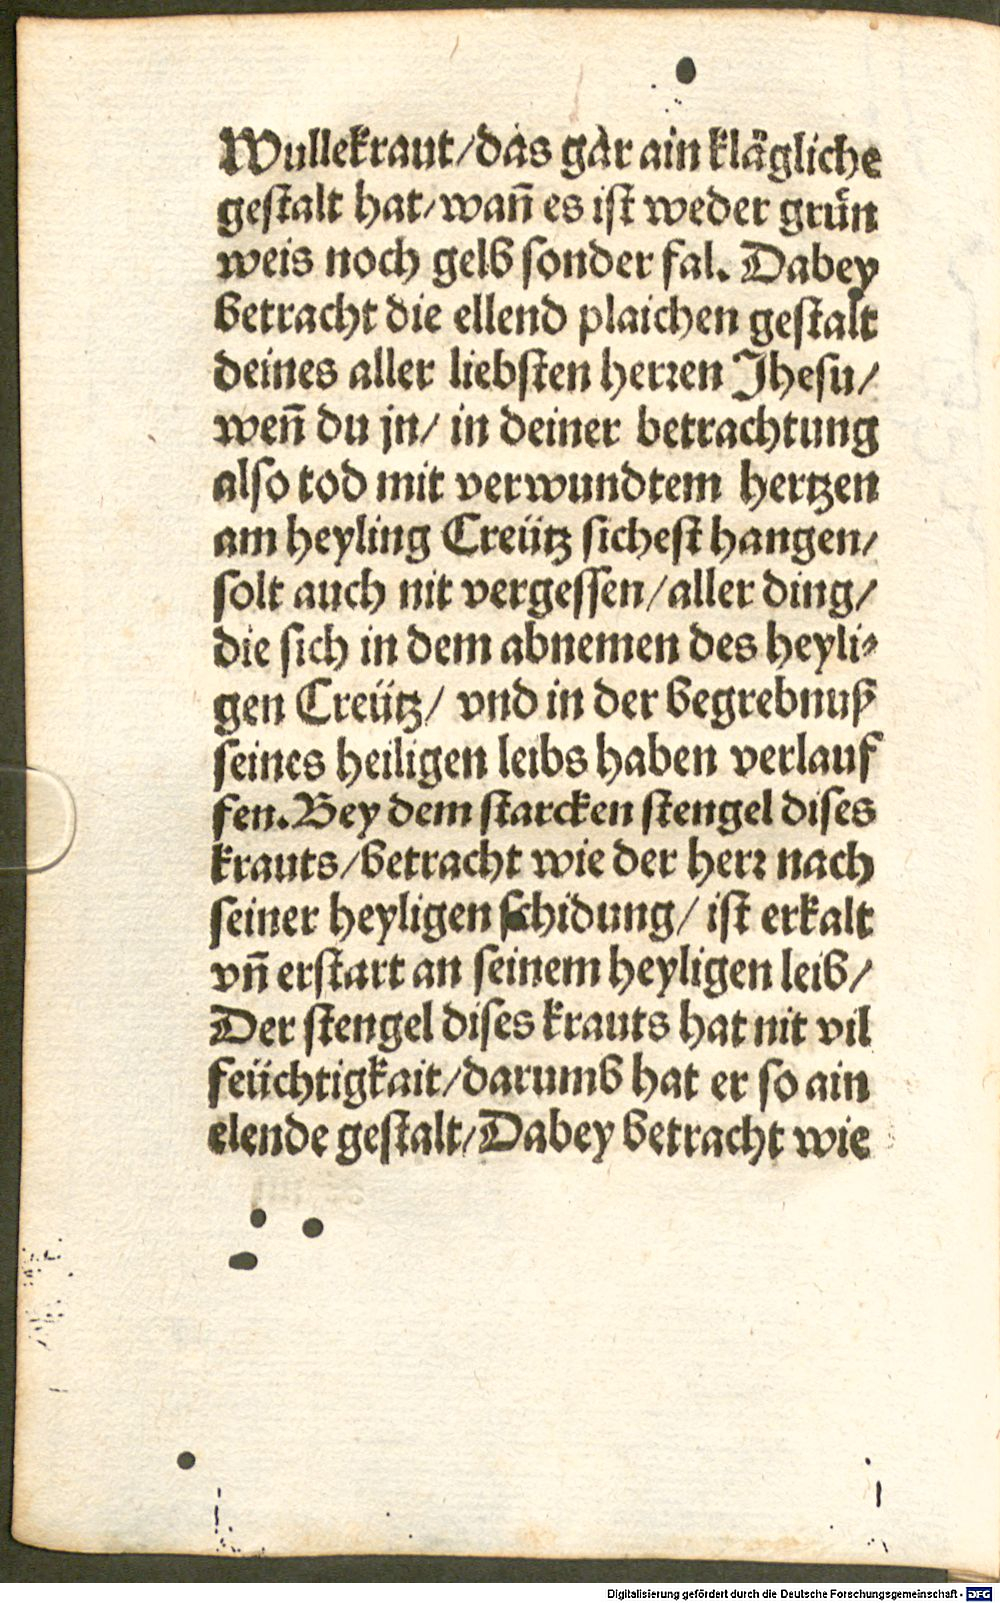 Wullekraut/das gar ain klägliche
gestalt hat/wañ es ist weder grün
weis noch gelb sonder fal. Dabey
betracht die ellend plaichen gestalt
deines aller liebsten herren Jhesu/
weñ du jn/ in deiner betrachtung
also tod mit verwundtem hertzen
am heyling Creütz sichest hangen/
solt auch nit vergessen/aller ding/
die sich in dem abnemen des heyli⸗
gen Creütz/ vnd in der begrebnuß
seines heiligen leibs haben verlauf
fen. Bey dem starcken stengel dises
krauts/betracht wie der herr nach
seiner heyligen schidung/ ist erkalt
vñ erstart an seinem heyligen leib/
Der stengel dises krauts hat nit vil
feüchtigkait/darumb hat er so ain
elende gestalt/Dabey betracht wie
Digitalisierung gefördert durch die Deutsche Forschungsgemeinschaft - DFG